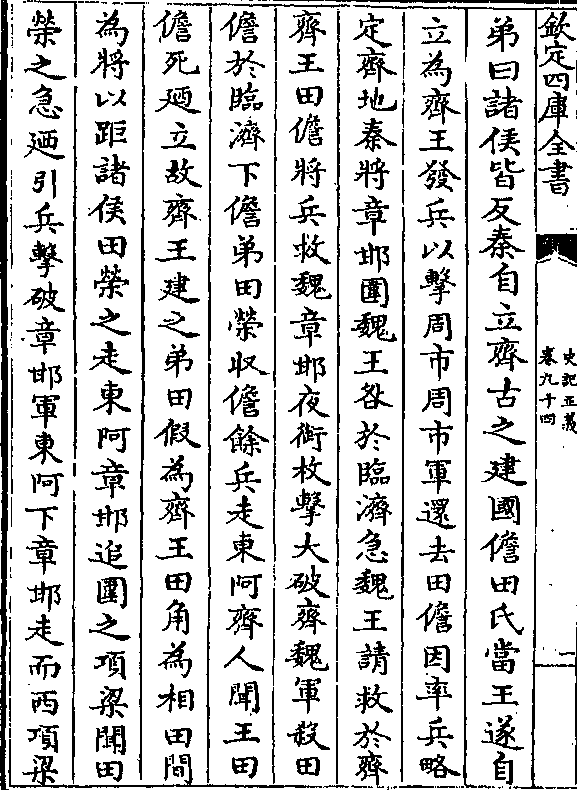 欽定四庫全書
史記正義
卷九十四
一
弟曰諸侯皆反秦自立齊古之建國儋田氏當王遂自
立為齊王發兵以擊周市周市軍還去田儋因率兵略
定齊地秦將章邯圍魏王咎於臨濟急魏王請救於齊
齊王田儋將兵救魏章邯夜銜枚擊大破齊魏軍殺田
儋於臨濟下儋弟田榮收儋餘兵走東阿齊人聞王田
儋死廼立故齊王建之弟田假為齊王田角為相田間
為將以距諸侯田榮之走東阿章邯追圍之項梁聞田
榮之急廼引兵擊破章邯軍東阿下章邯走而西項梁